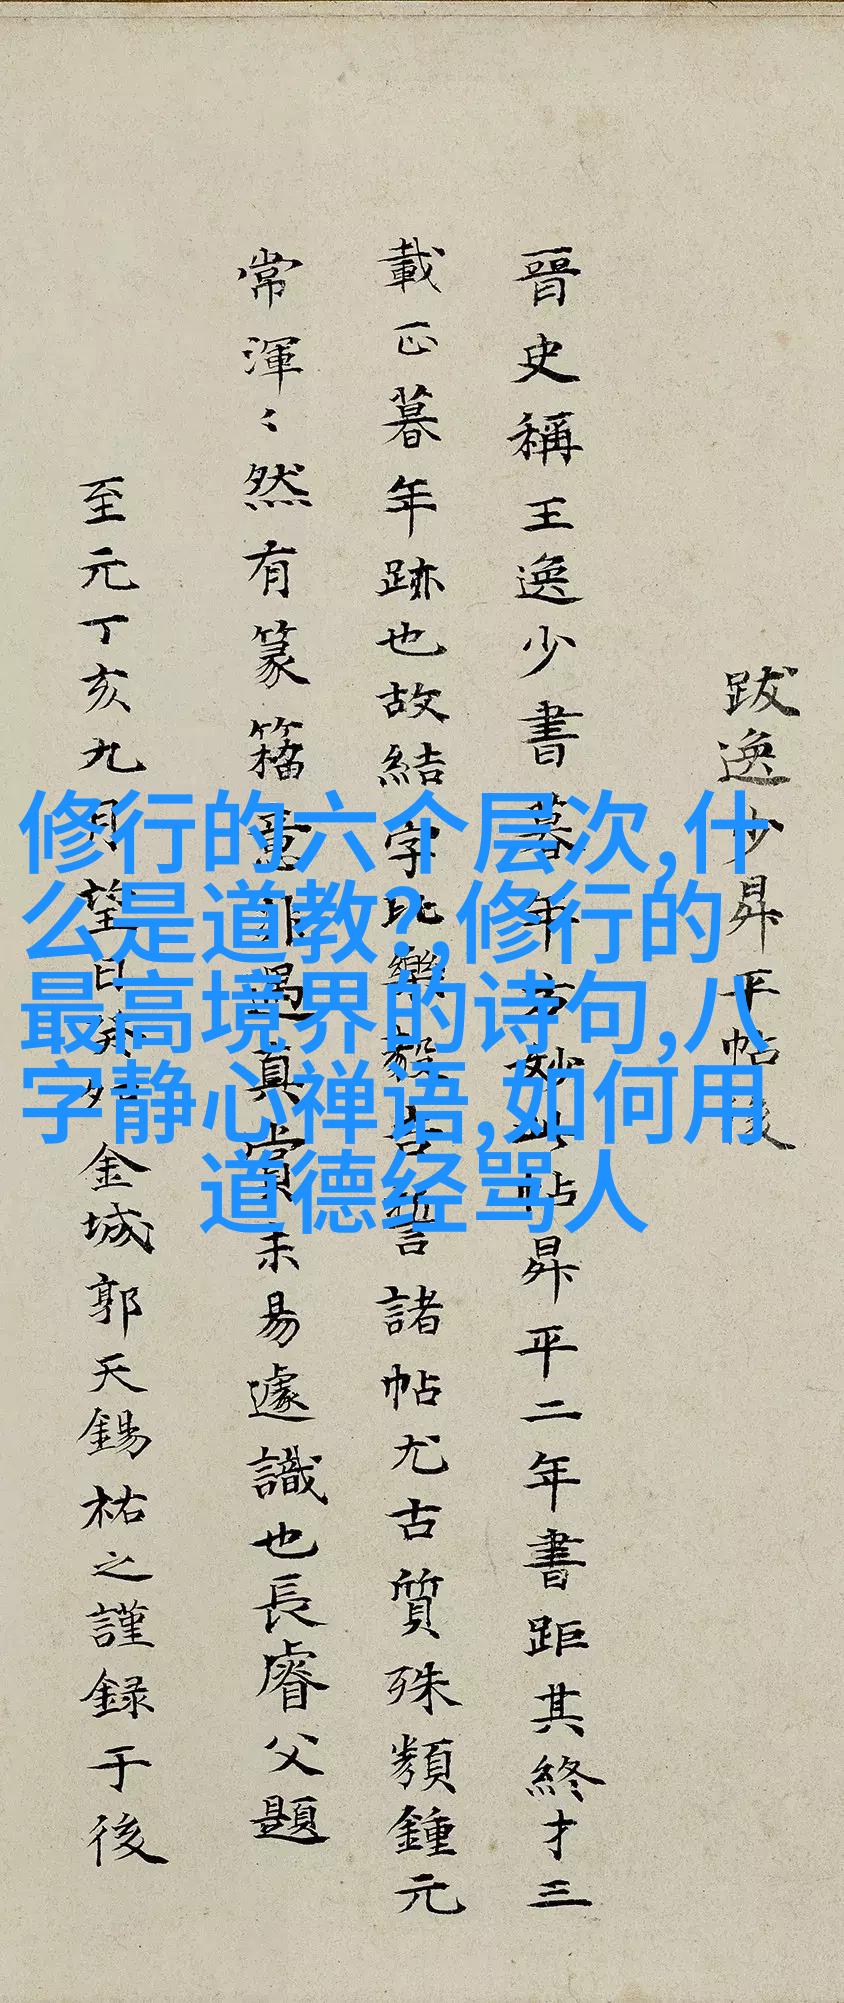 跋逸少昇平帖後
晉史稱王逸少書暮年方妙此帖昇平二年書距其終才三
載正暮年跡也故結字比樂毅告誓諸帖尤古質殊類鍾元
常渾〻然有篆籀意非遇真賞未易遽識也長睿父題
至元丁亥九月望日
金城郭天錫祐之謹録于後
修行的六个层次,什
么是道教?,修行的
最高境界的诗句,八
字静心禅语,如何用
道德经骂人